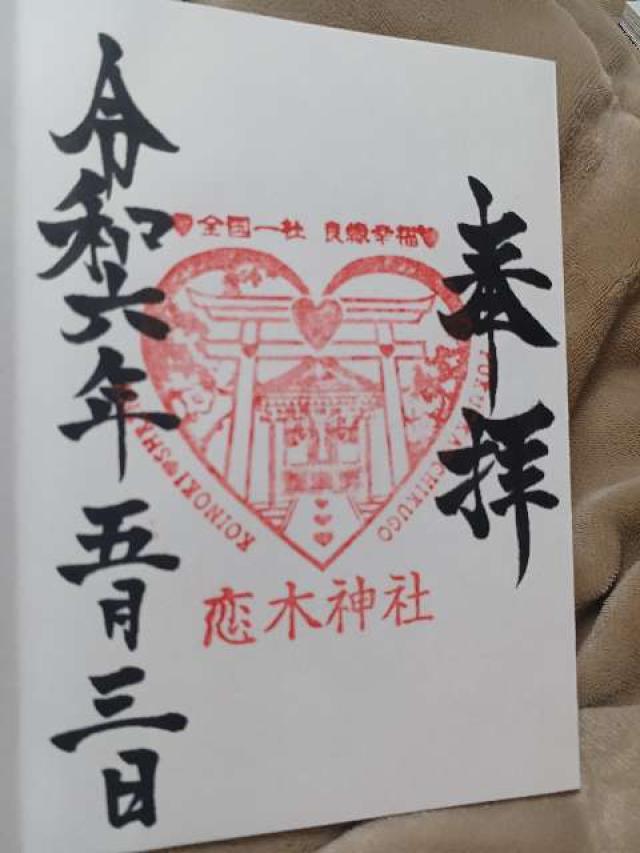 奉拝
全国一社 良縁幸福
KOINOKI♥SHRINE
FUKUOKA CHIKUGO
恋木神社
令和六年五月三日